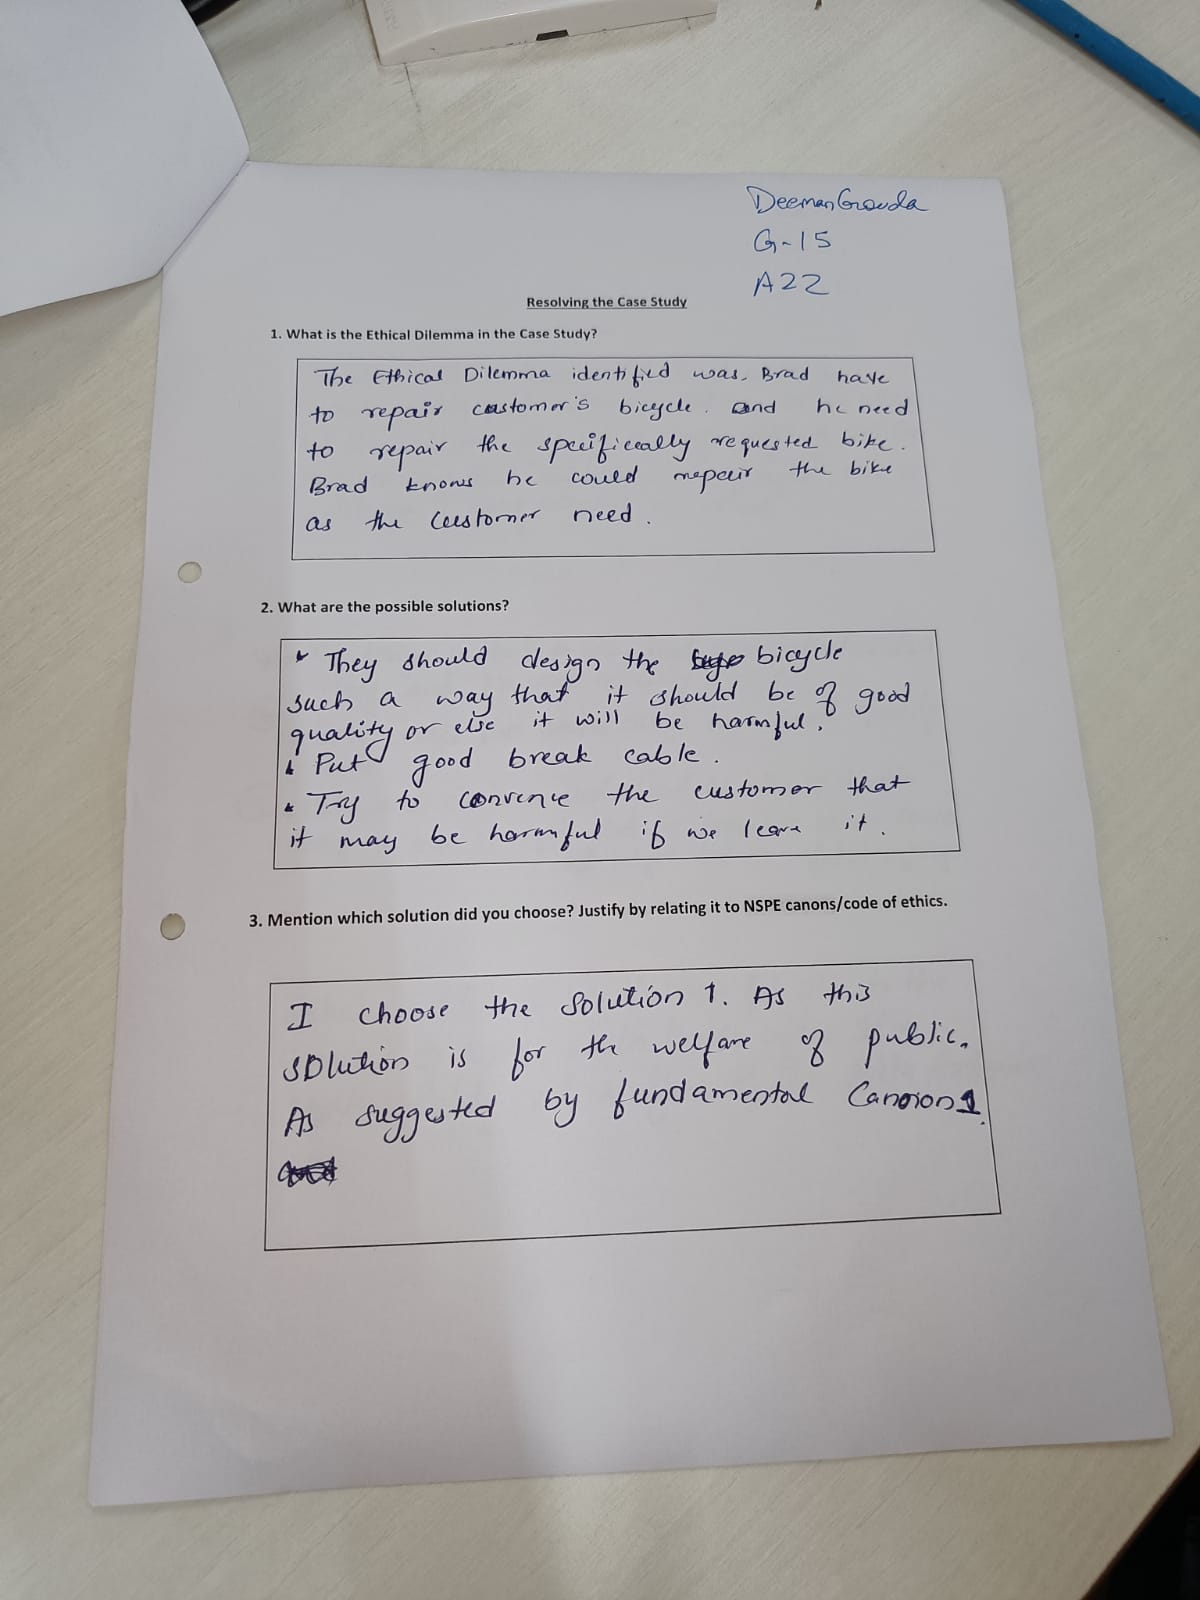 Deeman Gowda
G-15
A22
Resolving the Case Study
1. What is the Ethical Dilemma in the Case Study?
The Ethical Dilemma identified was, Brad have
to repair customer's bicycle. and he need
to repair the specifically requested bike.
Brad knows he could repair the bike
as the customer need.
2. What are the possible solutions?
* They should design the bicycle
such a way that it should be of good
quality or else it will be harmful.
* Put good break cable.
* Try to convence the customer that
it may be harmful if we leave it.
3. Mention which solution did you choose? Justify by relating it to NSPE canons/code of ethics.
I choose the solution 1. As this
solution is for the welfare of public.
As suggested by fundamental Canoion 1.